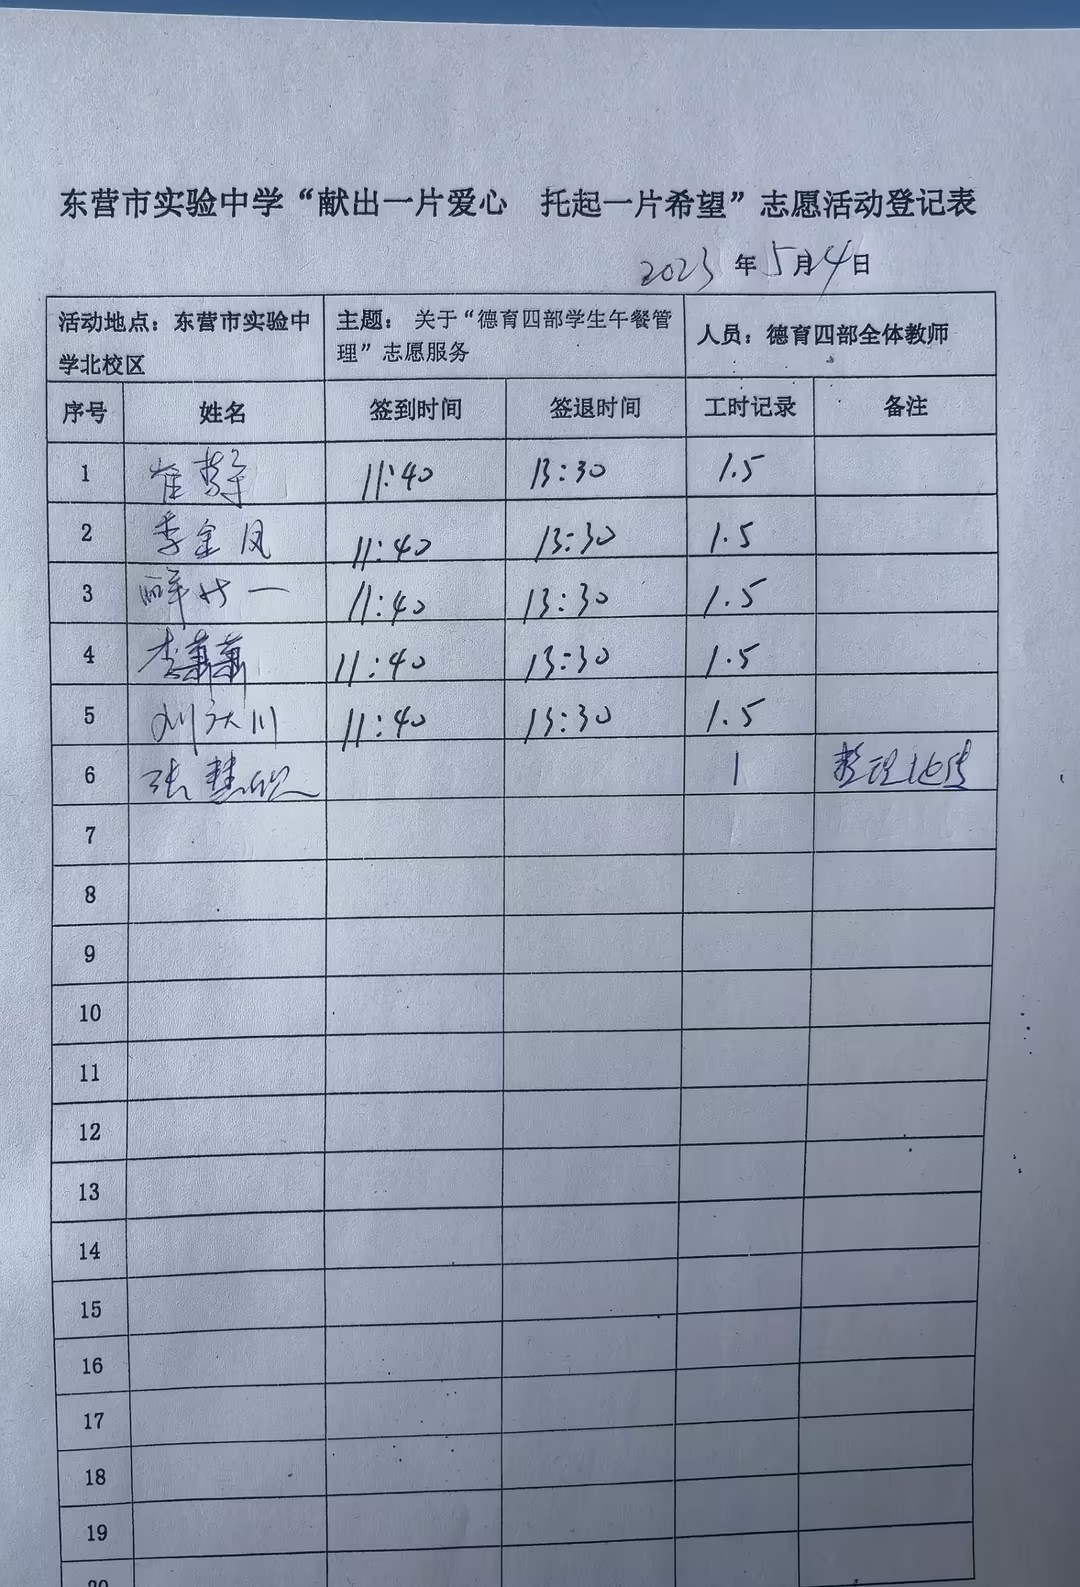 东营市实验中学“献出一片爱心 托起一片希望”志愿活动登记表
2023年5月4日
活动地点：东营市实验中学北校区 主题：关于“德育四部学生午餐管理”志愿服务 人员：德育四部全体教师
序号 姓名 签到时间 签退时间 工时记录 备注
1 崔 11:40 13:30 1.5
2 季金凤 11:40 13:30 1.5
3 一 11:40 13:30 1.5
4 李萧萧 11:40 13:30 1.5
5 刘 川 11:40 13:30 1.5
6 张慧欣 1 整理
7
8
9
10
11
12
13
14
15
16
17
18
19
20